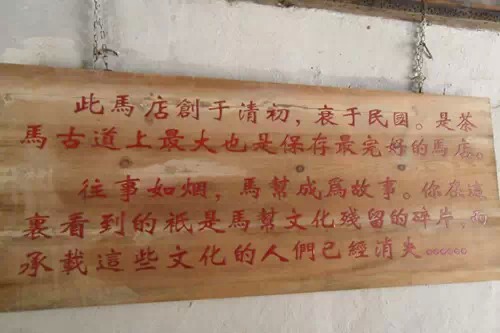 此馬店創于清初，衰于民國。是茶
馬古道上最大也是保存最完好的馬店。
往事如烟，馬幫成爲故事。你在這
裏看到的祇是馬幫文化殘留的碎片，而
承載這些文化的人們已經消失……